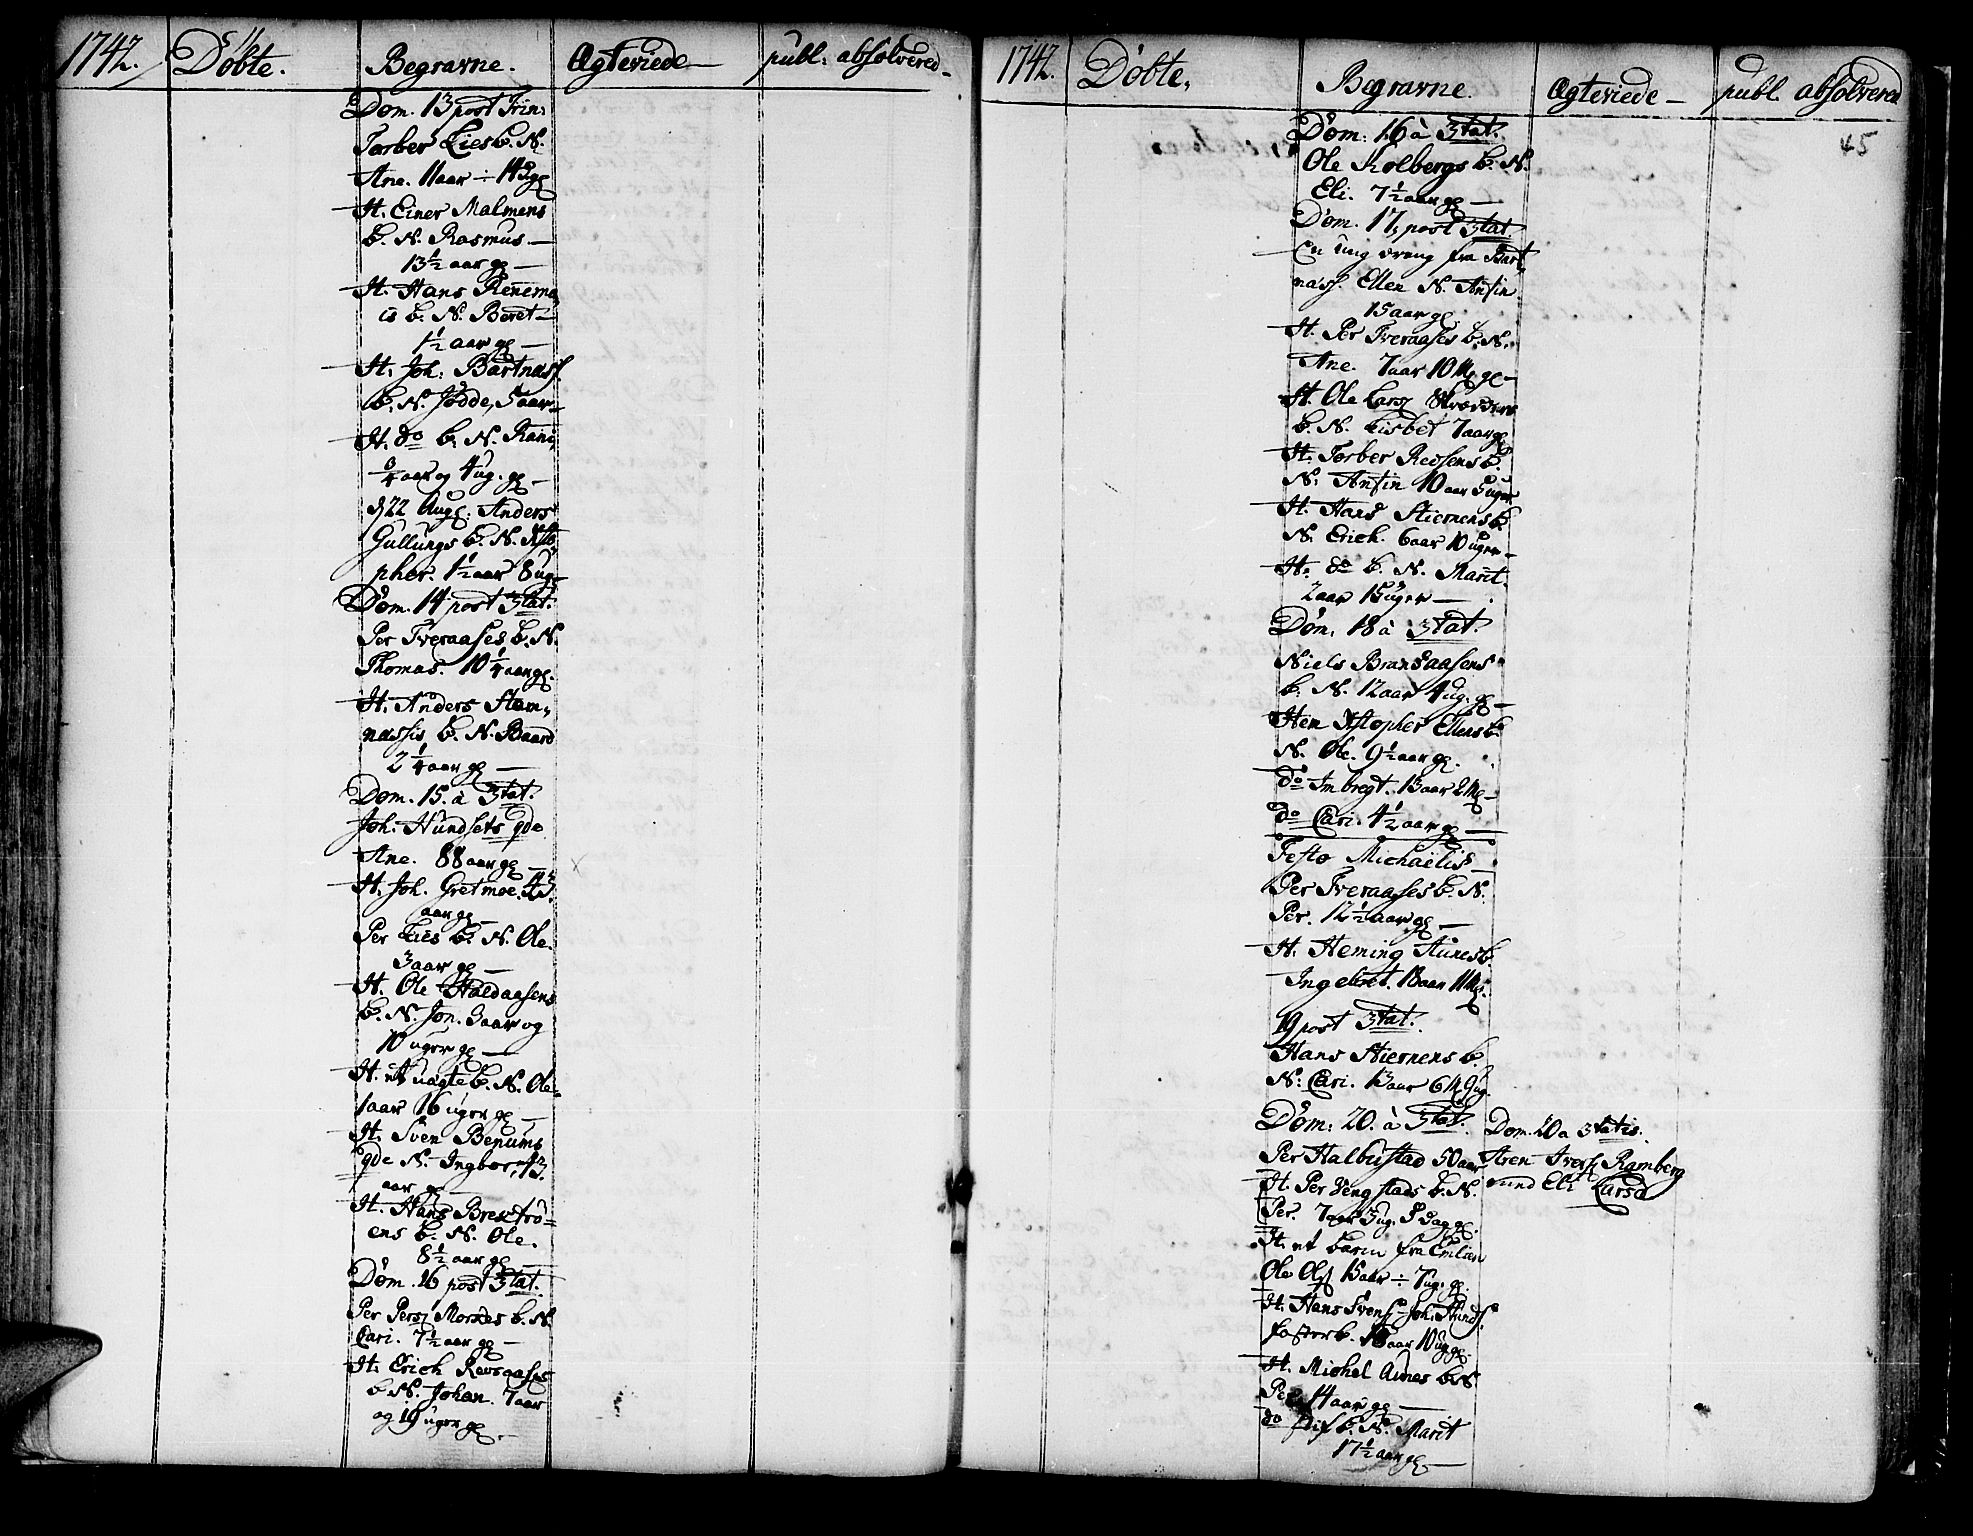 1742.
Döbte.
Begravne.
Ægteviede
publ. absolvered
Dom. 13 post Trin:
Torber Lies b. N.
Ane. 11 aar ÷ 14 ug
It. Einer Malmens
b. N. Rasmus
13½ aar gl
It. Hans Renemo
is b. N. Beret
1½ aar gl
It. Joh: Bartnass
b. N. Jodde, 5 aar
It. do b. N. Rani
¾ aar og 4 ug. gl
d 22 Aug. Anders
Gullungs b. N. Xsto
pher. 1½ aar 8 ug
Dom. 14 post Stat.
Per Tveraases b. N.
Thomas. 10¼ aar gl.
It. Anders Stam,
nassis b. N. Baard
2¼ aar gl
Dom. 15. à Stat.
Joh: Hundsets qde
Ane. 88 aar gl
It. Joh. Gretmoe. 43
aar gl
Per Lies b. N. Ole.
3 aar gl
It. Ole Haldaasens
b. N. Jon. 3 aar og
10 uger gl
It. et uægte b. N. Ole
1 aar 16 uger gl
It. Sven Benums
qde N. Ingbor, 43
aar gl
It. Hans Brextrö
ens b. N. Ole.
8½ aar gl
Dom. 16 post Stat.
Per Pers Morxes b. N
Cari. 7½ aar gl
It. Erich Ravsaases
b. N. Johan. 7 aar
og 19 uger gl
1742.
Döbte.
Begravne.
Ægteviede
publ. absolvered
45
Dom: 16 à Stat.
Ole Kolbergs b. N.
Eli. 7½ aar gl
Dom. 17, post Stat.
En ung dreng fra Bart
nass Ellen N. Anfin
15 aar gl
It. Per Tveraases b. N.
Ane. 7 aar 10 M. gl
It. Ole Lars
b. N. Lisbet 7 aar gl
It. Torber Redsens b.
N. Anfin 10 aar 5 uger
It. Hans Stiernens b.
N. Erich. 6 aar 10 uger
It. do b. N. Marit.
2 aar 15 uger
Dom. 18 à Stat.
Niels Brandaasens
b. N. 12 aar 4 ug. gl
Item Xstopher Ellens b.
N. Ole. 9½ aar gl.
do Imbregt. 13 aar 2 M
do Cari. 4½ aar gl
Festo Michaëlis
Per Tveraases b. N.
Per. 12½ aar gl
It. Heming Aunes b.
Ingebret. 18 aar 11 M.
19 post Stat.
Hans Stiernens b.
N. Cari. 13 aar 6 M 9 ug
Dom: 20. à Stat.
Per Halbustad 50 aar
It. Per Vengstads b. N.
Per. 7 aar 3 ug. 5 dag gl.
It. et barn fra Emlien
Ole Ols 15 aar ÷ 7 ug. gl
It. Hans Svens Joh: Hunds.
fosterb. 18 aar 10 ug gl.
It. Michel Aunes b. N
Per 14 aar gl
do b. N. Marit
17½ aar gl
Dom. 20 a Statis.
Aren Ivers Ramberg
und Eli Larsd